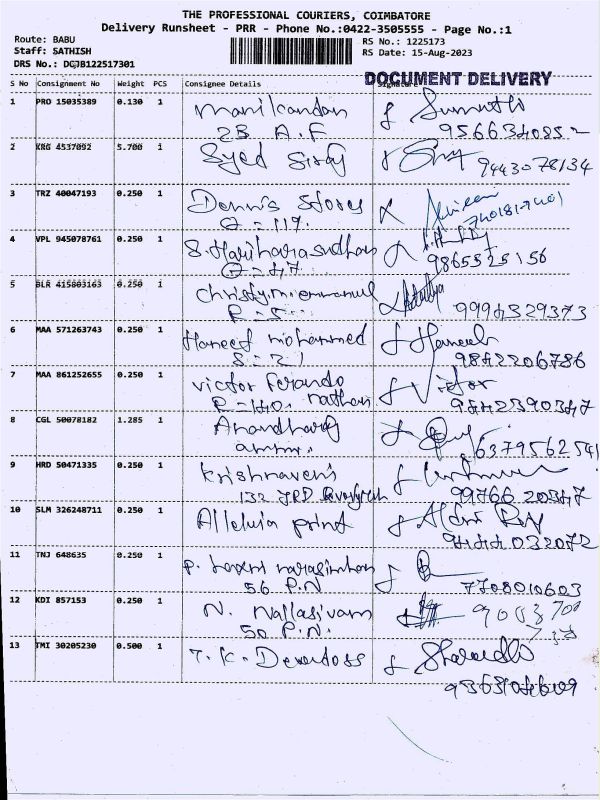 THE PROFESSIONAL COURIERS, COIMBATORE
Delivery Runsheet - PRR - Phone No.:0422-3505555 - Page No.:1
Route: BABU
Staff: SATHISH
DRS No.: DGJB122517301
RS No.: 1225173
RS Date: 15-Aug-2023
DOCUMENT DELIVERY
S No Consignment No Weight PCS Consignee Details Signature
1 PRO 15035389 0.130 1 Manikandan
2B A.F
2 KRG 4537092 5.700 1 Syed Siraj 9443078134
3 TRZ 40047193 0.250 1 Dennis Stores
4 VPL 945078761 0.250 1 S. Hariharasudhan
9865525156
5 BLR 415803163 0.250 1
9994329373
6 MAA 571263743 0.250 1 Haneef mohammed
S=21 9842206786
7 MAA 861252655 0.250 1 Victor Ferando Victor
9842390347
8 CGL 50078182 1.285 1 Anandharaj
9 HRD 50471335 0.250 1 Krishnaveni
132 99766 20347
10 SLM 326248711 0.250 1 Alleluia print
9444032072
11 TNJ 648635 0.250 1 P. narasimhan
56 P.N 7708010603
12 KDI 857153 0.250 1 N. Nallasivam
50 P.N.
13 TMI 30205230 0.500 1 T. K. Devadoss